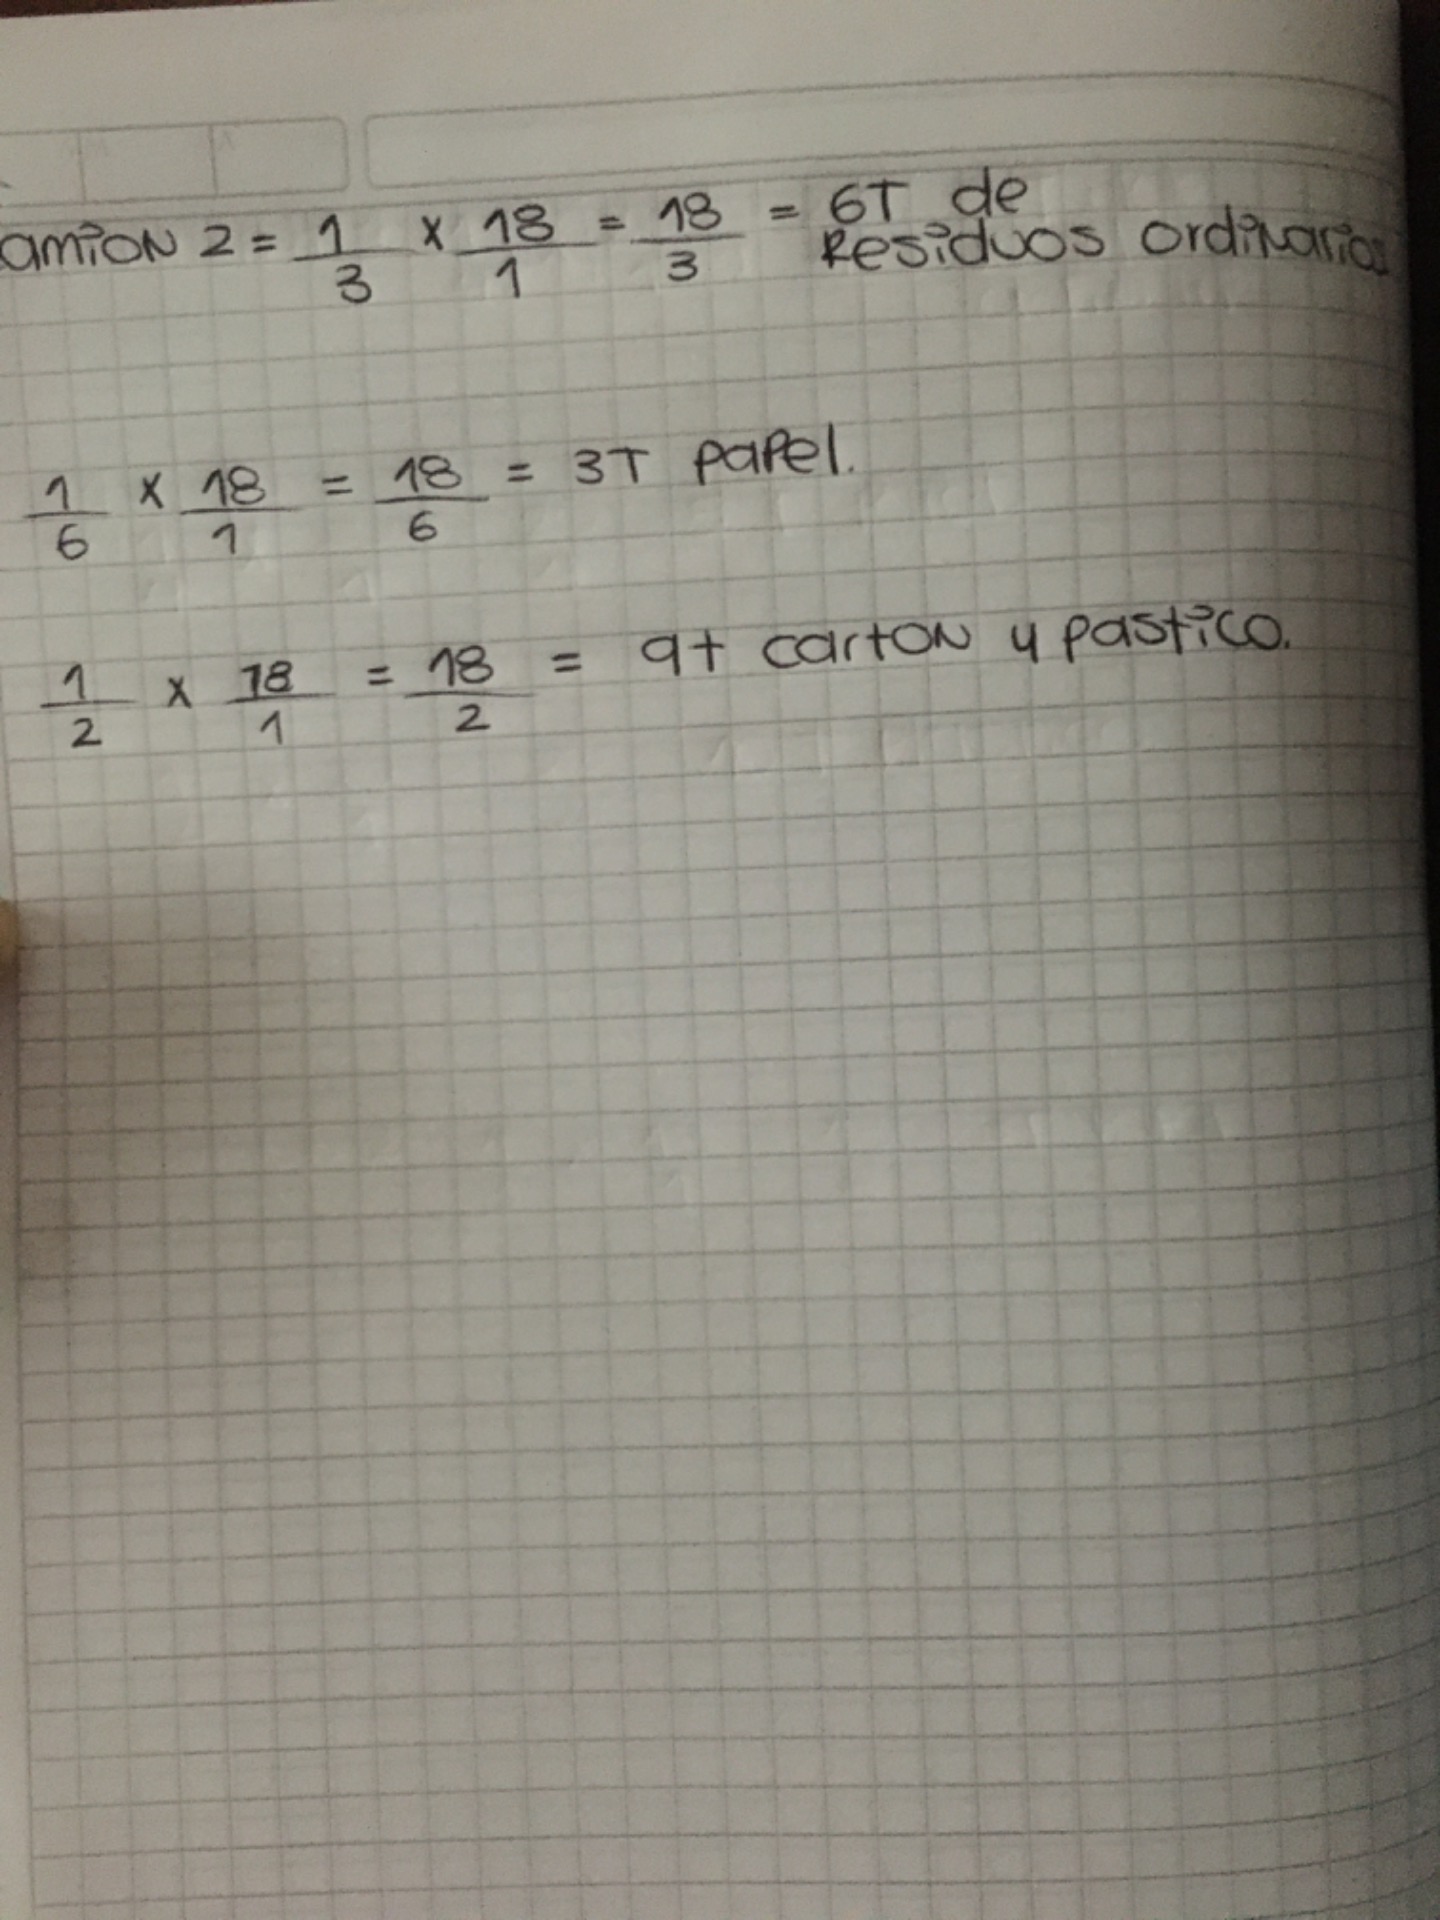 amion 2 = 1/3 x 18/1 = 18/3 = 6T de
Residuos ordinarios
1/6 x 18/1 = 18/6 = 3T papel.
1/2 x 18/1 = 18/2 = 9t carton y pastico.